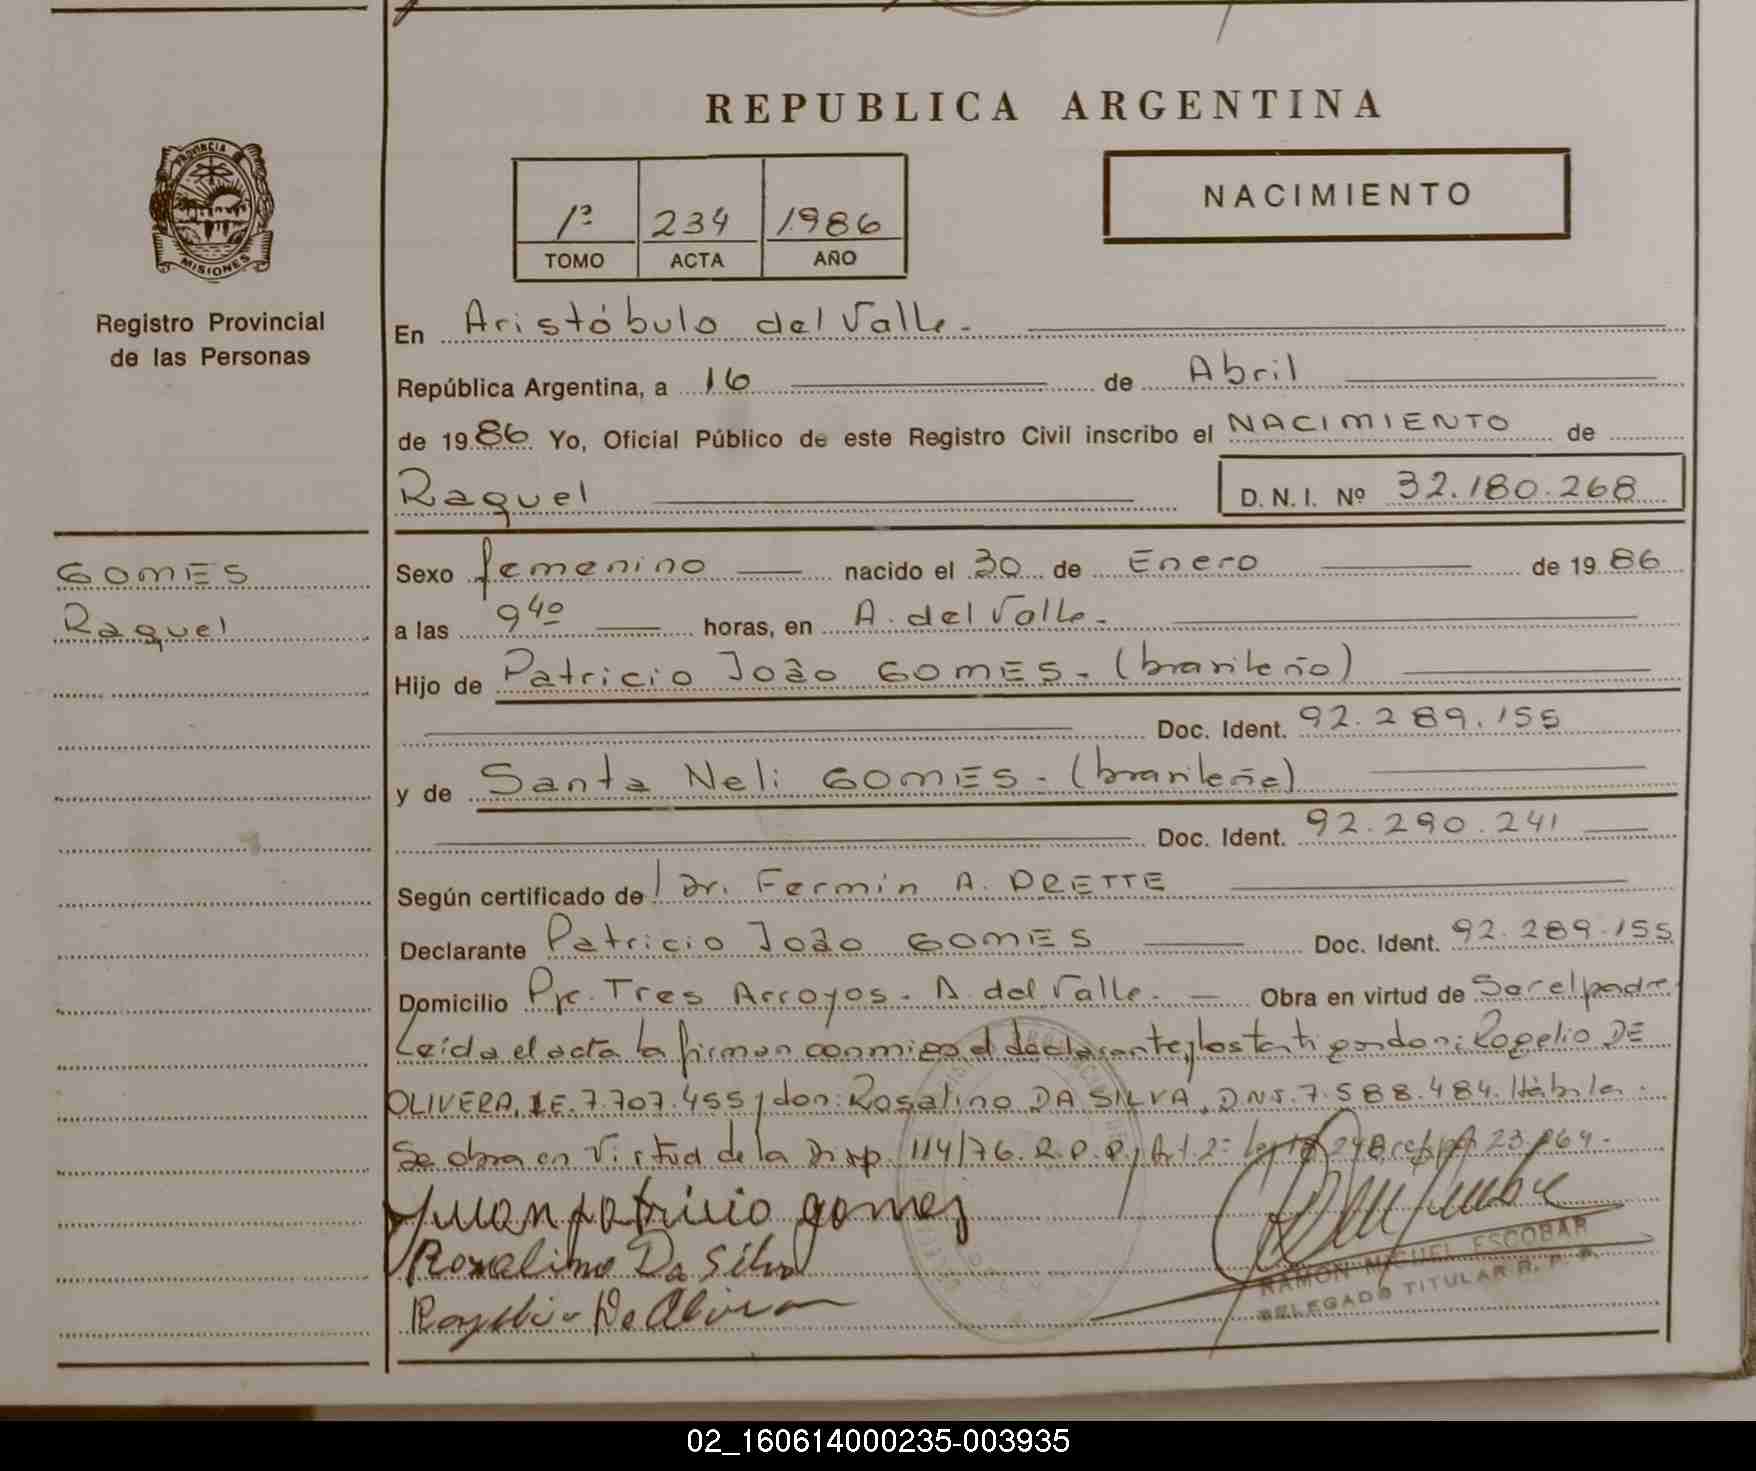 REPUBLICA ARGENTINA
PROVINCIA
MISIONES
Registro Provincial
de las Personas
1º 234 1986
TOMO ACTA AÑO
NACIMIENTO
En Aristóbulo del Valle.
República Argentina, a 16 de Abril
de 1986 Yo, Oficial Público de este Registro Civil inscribo el NACIMIENTO de
Raquel D. N. I. Nº 32.180.268
GOMES
Raquel
Sexo femenino nacido el 30 de Enero de 1986
a las 9 40 horas, en A. del Valle.
Hijo de Patricio João GOMES. (brasileño)
Doc. Ident. 92.289.155
y de Santa Neli GOMES. (brasileña)
Doc. Ident. 92.290.241
Según certificado de Dr. Fermín A. DRETTE
Declarante Patricio João GOMES Doc. Ident. 92.289.155
Domicilio Pje. Tres Arroyos. A. del Valle. Obra en virtud de Ser el padre
Leída el acta la firman conmigo el declarante y los testigos don: Rogelio DE
OLIVERA, LE. 7.707.455 y don: Rosalino DA SILVA, DNI. 7.588.484. Hábiles.
Se obra en virtud de la Disp. 114/76. R.P.P. y Art. 2º
Juan patricio gomes
Rosalino Da Silva
Rogelio De Olivera
RAMON MIGUEL ESCOBAR
DELEGADO TITULAR R. P. P.
02_160614000235-003935